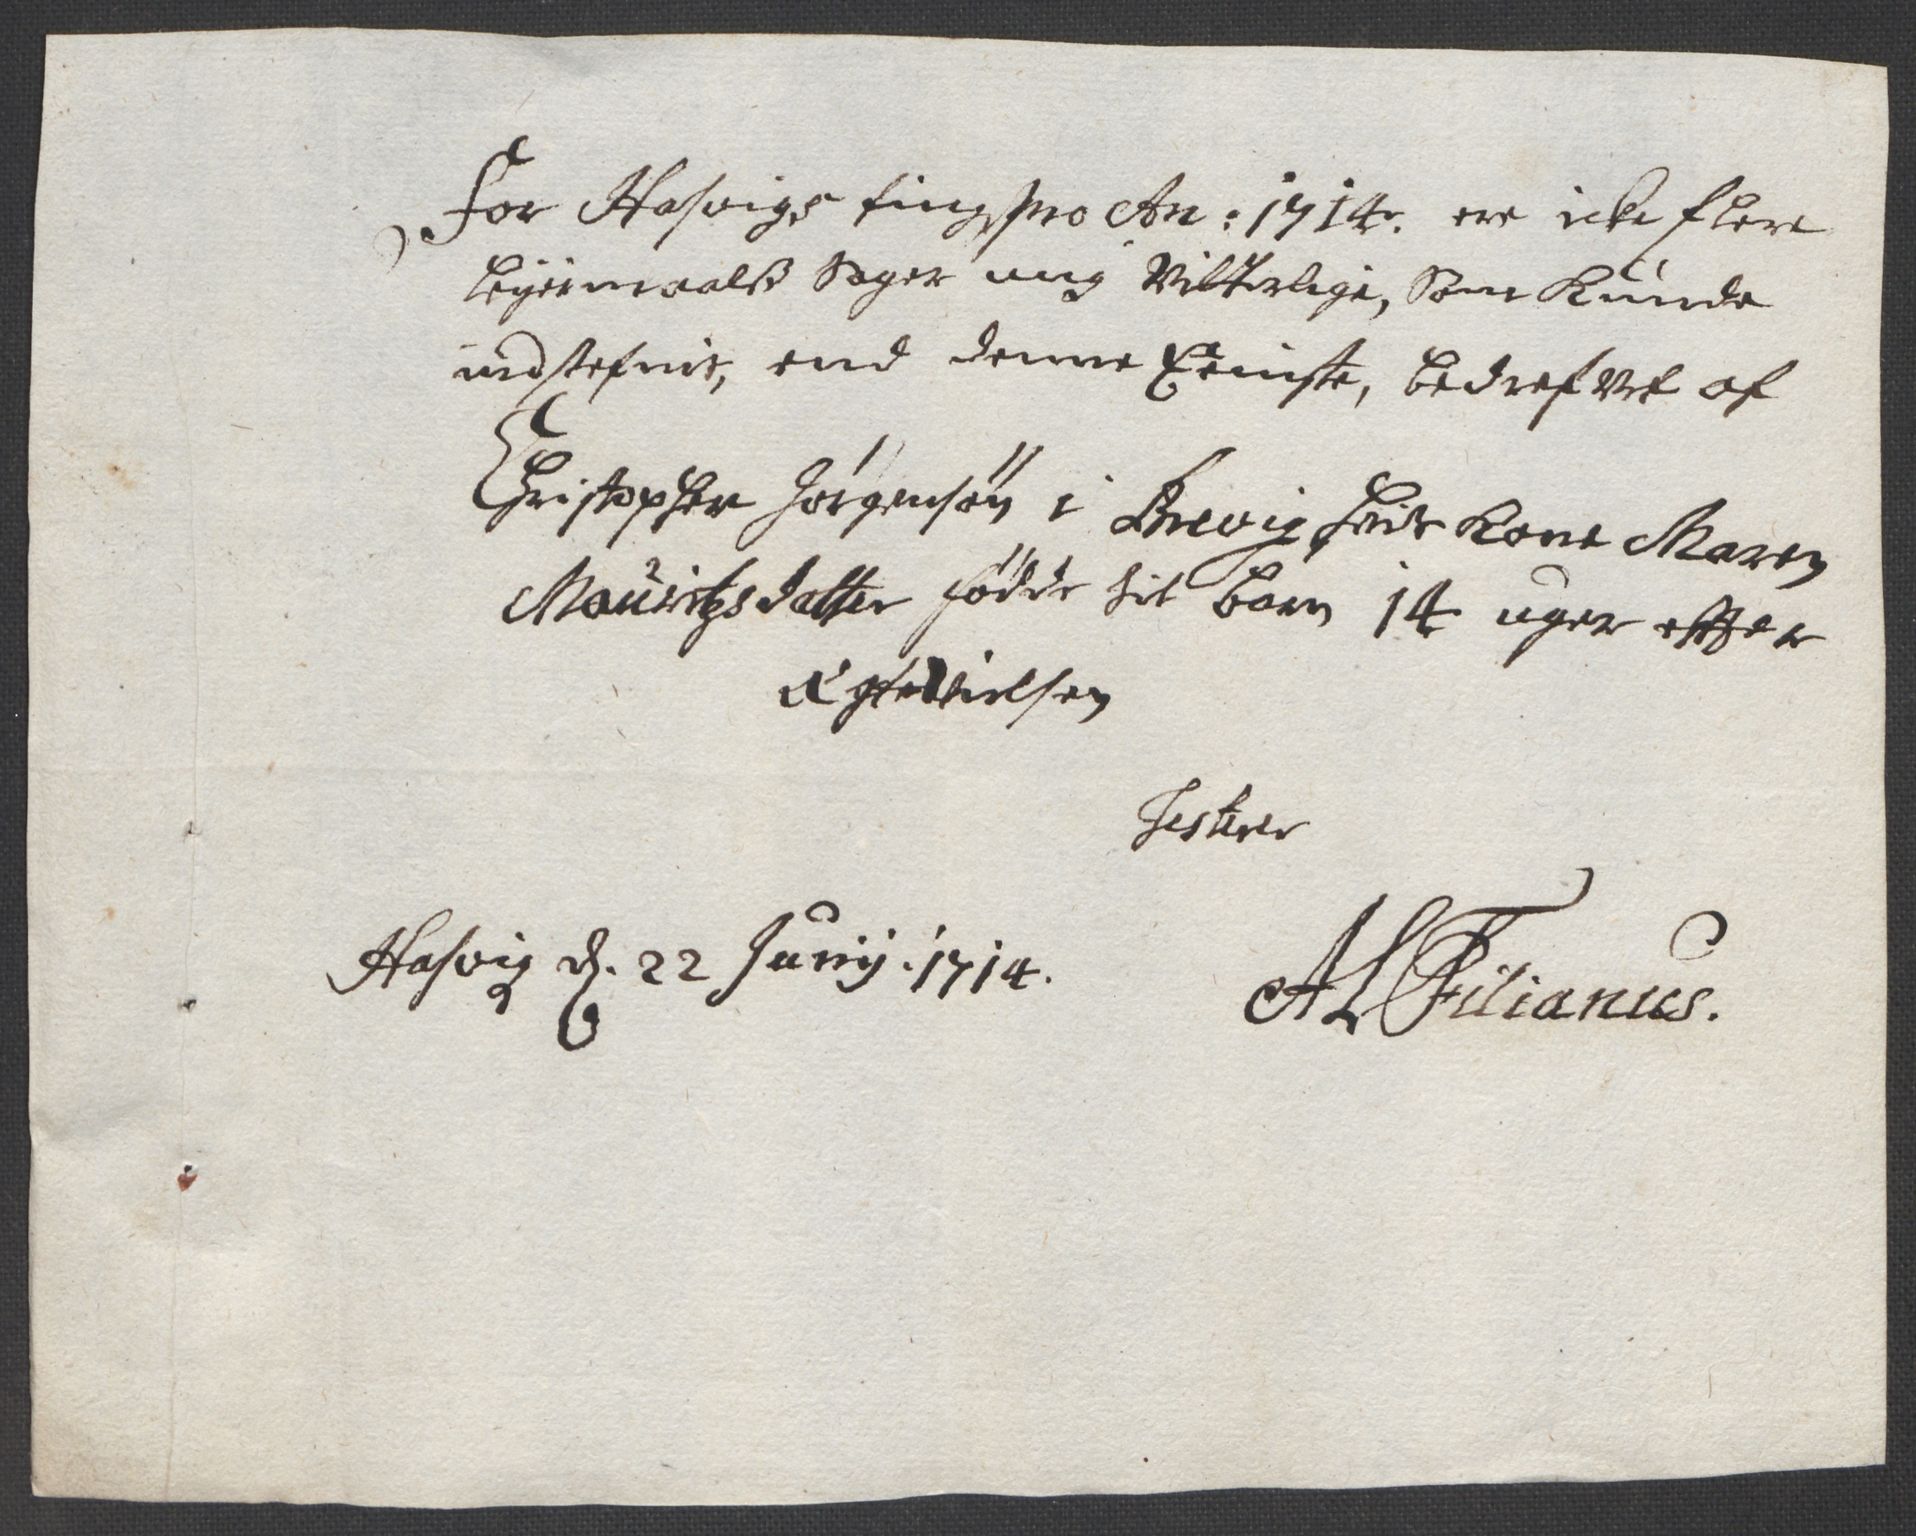 For Hasvigs ting pro An: 1714. ere icke flere
leyermaalß Sager mig Vitterlige, Som Kunde
indstefnis, end denne Eeniste, bedrefvet af
Christopher Jörgensön i Brevig hvis Kone Maren
Mauritzsdatter födde sit barn 14 uger effter
Ægtevielsen
Testerer
Hasvig d. 22 Junij. 1714.
AL Filianus.